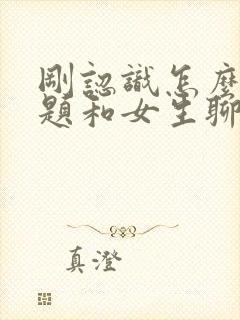 剛認識怎麼
題和女生聊
真澄